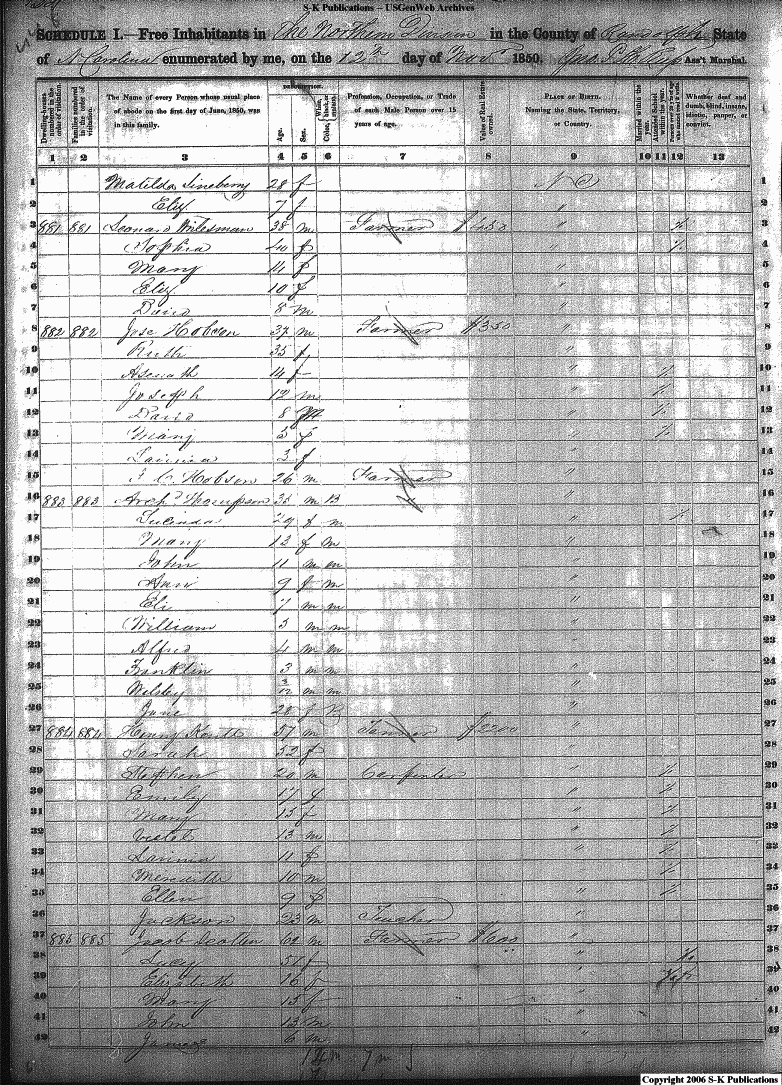 S-K Publications – USGenWeb Archives
SCHEDULE I.—Free Inhabitants in The Northern Division in the County of Randolph State
of N Carolina enumerated by me, on the 12th day of Nov 1850. Ass't Marshal.
DESCRIPTION.
Dwelling-houses numbered in the order of visitation.
Families numbered in the order of visitation.
The Name of every Person whose usual place of abode on the first day of June, 1850, was in this family.
Age.
Sex.
White, black, or mulatto.
Profession, Occupation, or Trade of each Male Person over 15 years of age.
Value of Real Estate owned.
PLACE OF BIRTH. Naming the State, Territory, or Country.
Married within the year.
Attended School within the year.
Whether deaf and dumb, blind, insane, idiotic, pauper, or convict.
1 2 3 4 5 6 7 8 9 10 11 12 13
1 Matilda Lineberry 28 f N C 1
2 Eliz 7 f " 2
3 881 881 Leonard 38 m Farmer " / 3
4 Sophia 40 f " / 4
5 Mary 14 f " 5
6 Eliz 10 f " 6
7 David 8 m " 7
8 882 882 Jose Hobson 37 m Farmer $350 " 8
9 Ruth 35 f " 9
10 Asenath 14 f " / 10
11 Joseph 12 m " / 11
12 David 8 m " / 12
13 Mary 5 f " / 13
14 3 f " 14
15 Hobson 26 m Farmer " 15
16 883 883 Archd Thompson 35 m B " 16
17 Lucinda 29 f m " / 17
18 Mary 13 f m " 18
19 John 11 m m " 19
20 Ann 9 f m " 20
21 Eli 7 m m " 21
22 William 5 m m " 22
23 Alfred 4 m m " 23
24 Franklin 3 m m " 24
25 Wesley 3/12 m m " 25
26 Jane 28 f B " 26
27 884 884 Henry 57 m Farmer $2200 " 27
28 Sarah 52 f " 28
29 Stephen 20 m Carpenter " / 29
30 Emily 17 f " / 30
31 Mary 15 f " / 31
32 13 m " / 32
33 11 f " / 33
34 Meredith 10 m " / 34
35 Ellen 9 f " / 35
36 Jackson 23 m Teacher " 36
37 885 885 Jacob Scotten 60 m Farmer $600 " 37
38 Lucy 51 f " / 38
39 Elizabeth 16 f " 39
40 Mary 15 f " 40
41 John 13 m " 41
42 James 6 m " 42
Copyright 2006 S-K Publications